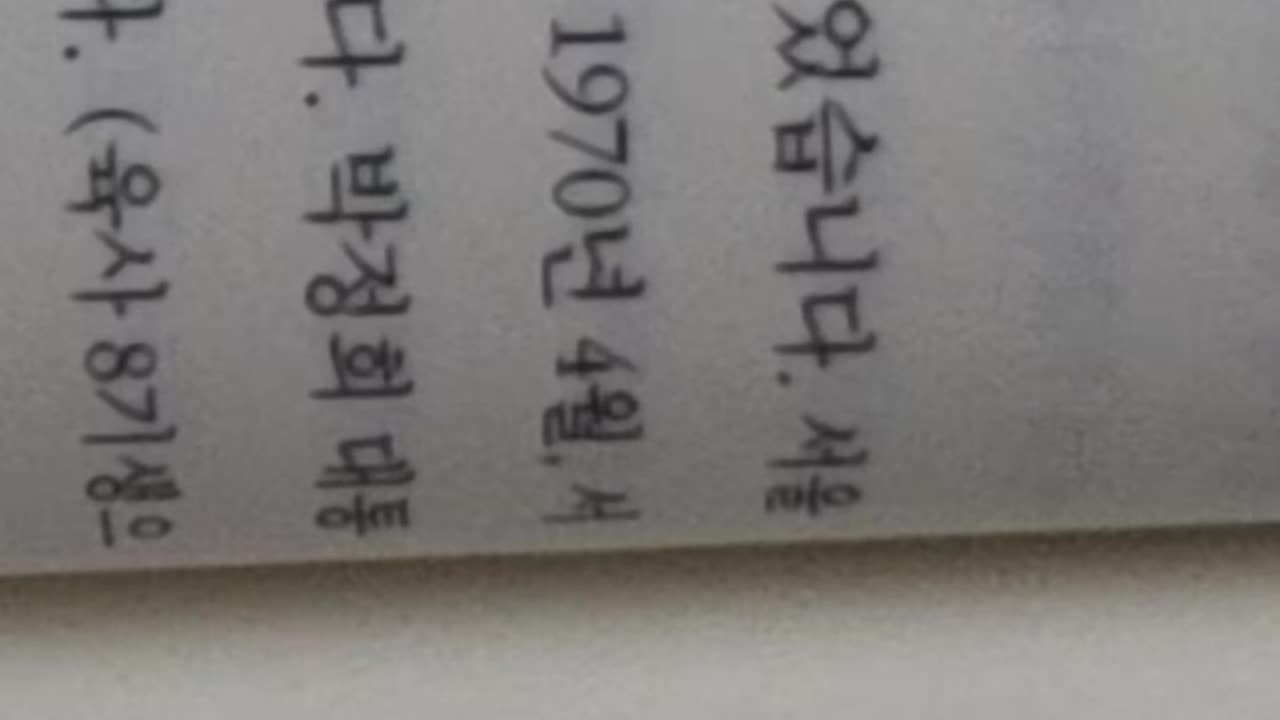 었습니다. 서울
1970년 4월, 서
다. 박정희 대통
(육사 8기생은